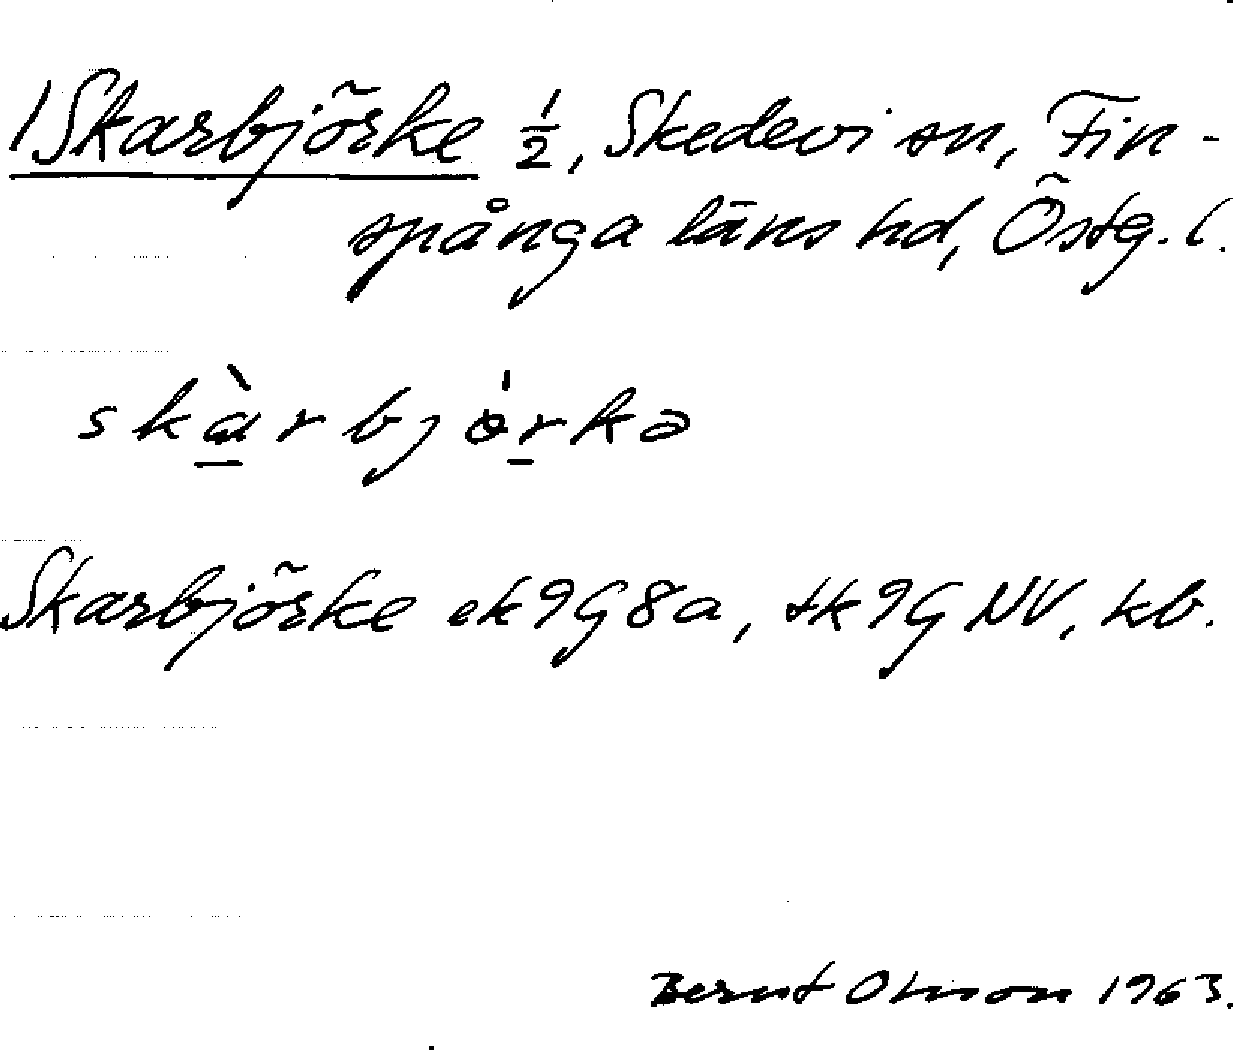 1 Skarbjörke 1/2, Skedevi sn, Fin-
spånga läns hd, Östg. l.
skàrbjórkə
Skarbjörke ek 9G8a, tk 9G NV, kb.
Bernt Olsson 1963.